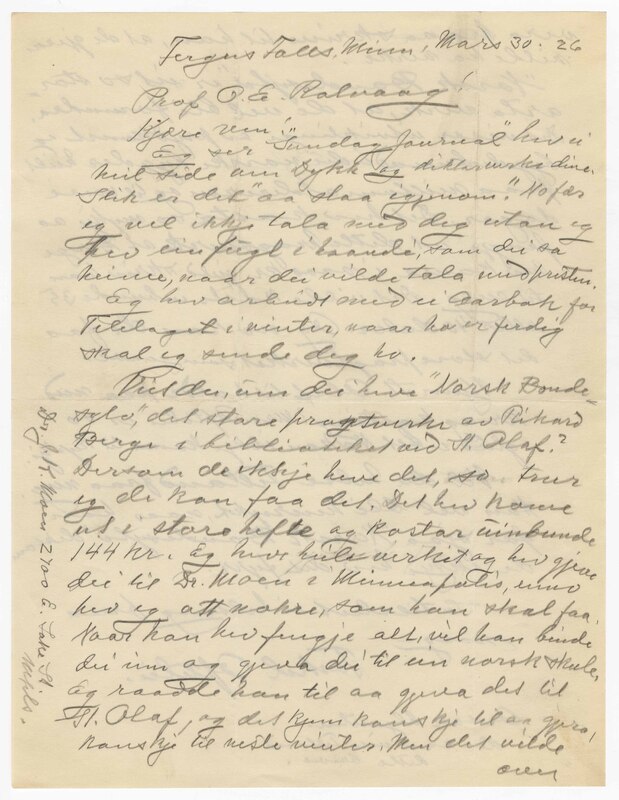 Fergus Falls, Minn, Mars 30. 26
Prof O. E. Rolvaag!
Kjære ven!
Eg ser "Sundag Journal" hev ei
heil side om Dykk og diktarverki dine.
Slik er det "aa slaa igjenom." No fær
eg vel ikkje tala med deg utan eg
hev ein fugl i haande, som dei sa
heime, naar dei vilde tala med presten.
Eg hev arbeidt med ei Aarbok for
Telelaget i vinter, naar ho er ferdig
skal eg sende deg ho.
Veit du, um dei heve "Norsk Bonde-
sylv", det store pragtverke av Rikard
Berge i biblioteket ved St. Olaf?
Dersom de ikkje heve det, so trur
eg de kan faa det. Det hev kome
ut i store hefte og kostar uinbunde
144 kr. Eg heve heile verkit og hev gjeve
dei til Dr. Moen i Minneapolis, enno
hev eg att nokre, som han skal faa.
Naar han hev fingje alt, vil han binde
dei inn og gjeva dei til ein norsk skule.
Eg raadde han til aa gjeva det til
St. Olaf, og det kjem kanskje til aa gjera,
kanskje til neste vinter. Men det vilde
over
Dr. J. K. Moen 2700 E. Lake St.
Mpls.